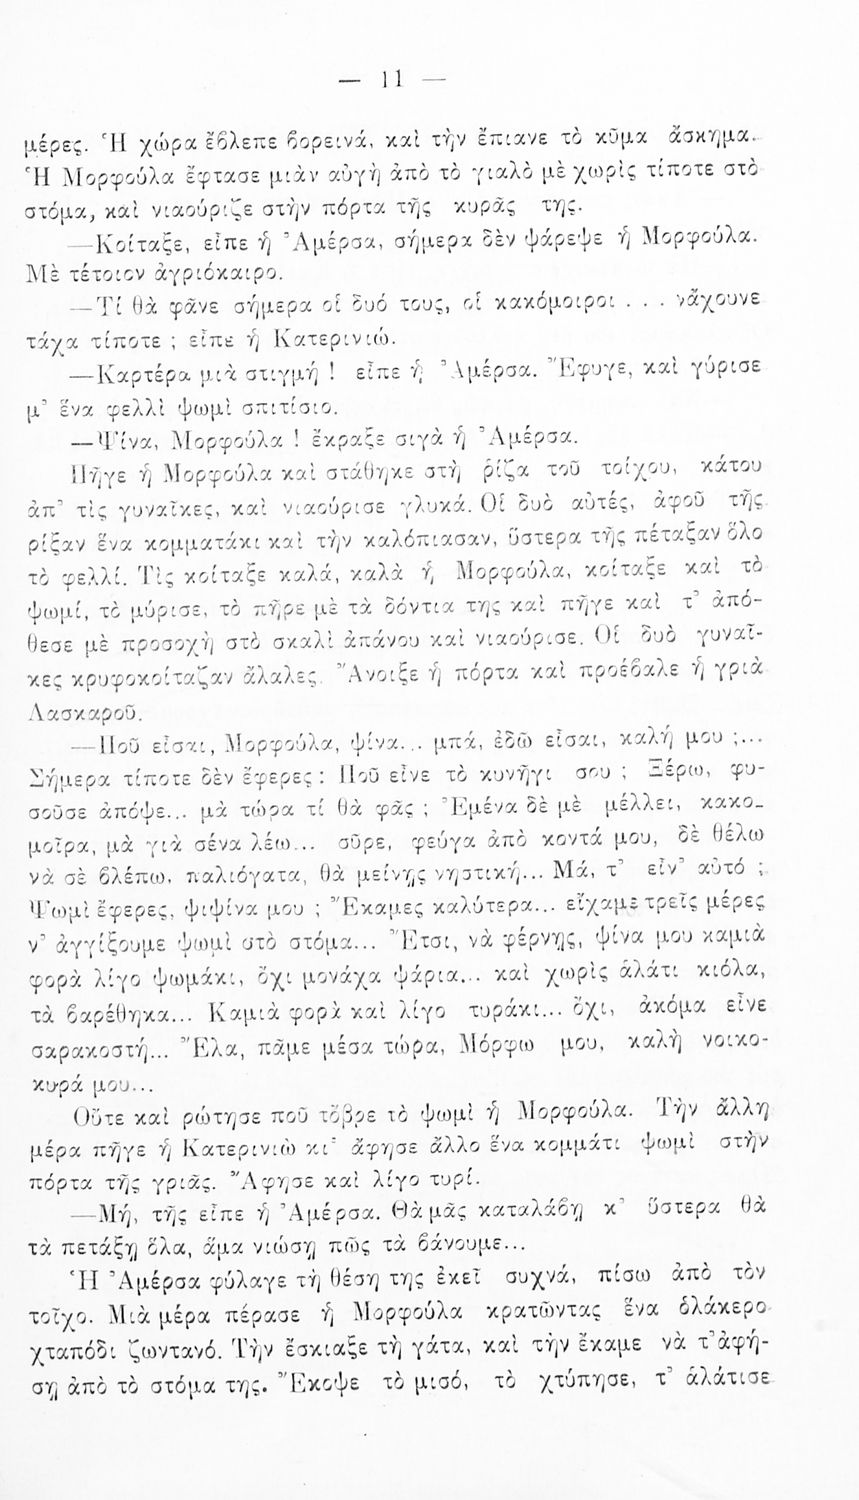 — 11 —
μέρες. Ἡ χώρα ἔβλεπε βορεινά, καὶ τὴν ἔπιανε τὸ κῦμα ἄσκημα.
Ἡ Μορφούλα ἔφτασε μιὰν αὐγὴ ἀπὸ τὸ γιαλὸ μὲ χωρὶς τίποτε στὸ
στόμα, καὶ νιαούριζε στὴν πόρτα τῆς κυρᾶς της.
—Κοίταξε, εἶπε ἡ Ἀμέρσα, σήμερα δὲν ψάρεψε ἡ Μορφούλα.
Μὲ τέτοιον ἀγριόκαιρο.
—Τί θὰ φᾶνε σήμερα οἱ δυό τους, οἱ κακόμοιροι . . . νἄχουνε
τάχα τίποτε ; εἶπε ἡ Κατερινιώ.
—Καρτέρα μιὰ στιγμή ! εἶπε ἡ Ἀμέρσα. Ἔφυγε, καὶ γύρισε
μ᾽ ἕνα φελλὶ ψωμὶ σπιτίσιο.
—Ψίνα, Μορφούλα ! ἔκραξε σιγὰ ἡ Ἀμέρσα.
Πῆγε ἡ Μορφούλα καὶ στάθηκε στὴ ρίζα τοῦ τοίχου, κάτου
ἀπ᾽ τὶς γυναῖκες, καὶ νιαούρισε γλυκά. Οἱ δυὸ αὐτές, ἀφοῦ τῆς
ρίξαν ἕνα κομματάκι καὶ τὴν καλόπιασαν, ὕστερα τῆς πέταξαν ὅλο
τὸ φελλί. Τὶς κοίταξε καλά, καλὰ ἡ Μορφούλα, κοίταξε καὶ τὸ
ψωμί, τὸ μύρισε, τὸ πῆρε μὲ τὰ δόντια της καὶ πῆγε καὶ τ᾽ ἀπό-
θεσε μὲ προσοχὴ στὸ σκαλὶ ἀπάνου καὶ νιαούρισε. Οἱ δυὸ γυναῖ-
κες κρυφοκοίταζαν ἄλαλες. Ἄνοιξε ἡ πόρτα καὶ προέβαλε ἡ γριὰ
Λασκαροῦ.
—Ποῦ εἶσαι, Μορφούλα, ψίνα... μπά, ἐδῶ εἶσαι, καλή μου ;...
Σήμερα τίποτε δὲν ἔφερες : Ποῦ εἶνε τὸ κυνῆγι σου ; Ξέρω, φυ-
σοῦσε ἀπόψε... μὰ τώρα τί θὰ φᾶς ; Ἐμένα δὲ μὲ μέλλει, κακο-
μοῖρα, μὰ γιὰ σένα λέω... σῦρε, φεύγα ἀπὸ κοντά μου, δὲ θέλω
νὰ σὲ βλέπω, παλιόγατα, θὰ μείνῃς νηστική... Μά, τ᾽ εἶν᾽ αὐτό ;
Ψωμὶ ἔφερες, ψιψίνα μου ; Ἔκαμες καλύτερα... εἴχαμε τρεῖς μέρες
ν᾽ ἀγγίξουμε ψωμὶ στὸ στόμα... Ἔτσι, νὰ φέρνῃς, ψίνα μου καμιὰ
φορὰ λίγο ψωμάκι, ὄχι μονάχα ψάρια... καὶ χωρὶς ἁλάτι κιόλα,
τὰ βαρέθηκα... Καμιὰ φορὰ καὶ λίγο τυράκι... ὄχι, ἀκόμα εἶνε
σαρακοστή... Ἔλα, πᾶμε μέσα τώρα, Μόρφω μου, καλὴ νοικο-
κυρά μου...
Οὔτε καὶ ρώτησε ποῦ τὄβρε τὸ ψωμὶ ἡ Μορφούλα. Τὴν ἄλλη
μέρα πῆγε ἡ Κατερινιὼ κι᾽ ἄφησε ἄλλο ἕνα κομμάτι ψωμὶ στὴν
πόρτα τῆς γριᾶς. Ἄφησε καὶ λίγο τυρί.
—Μή, τῆς εἶπε ἡ Ἀμέρσα. Θὰ μᾶς καταλάβῃ κ᾽ ὕστερα θὰ
τὰ πετάξῃ ὅλα, ἅμα νιώσῃ πῶς τὰ βάνουμε...
Ἡ Ἀμέρσα φύλαγε τὴ θέση της ἐκεῖ συχνά, πίσω ἀπὸ τὸν
τοῖχο. Μιὰ μέρα πέρασε ἡ Μορφούλα κρατῶντας ἕνα ὁλάκερο
χταπόδι ζωντανό. Τὴν ἔσκιαξε τὴ γάτα, καὶ τὴν ἔκαμε νὰ τ᾽ἀφή-
σῃ ἀπὸ τὸ στόμα της. Ἔκοψε τὸ μισό, τὸ χτύπησε, τ᾽ ἁλάτισε